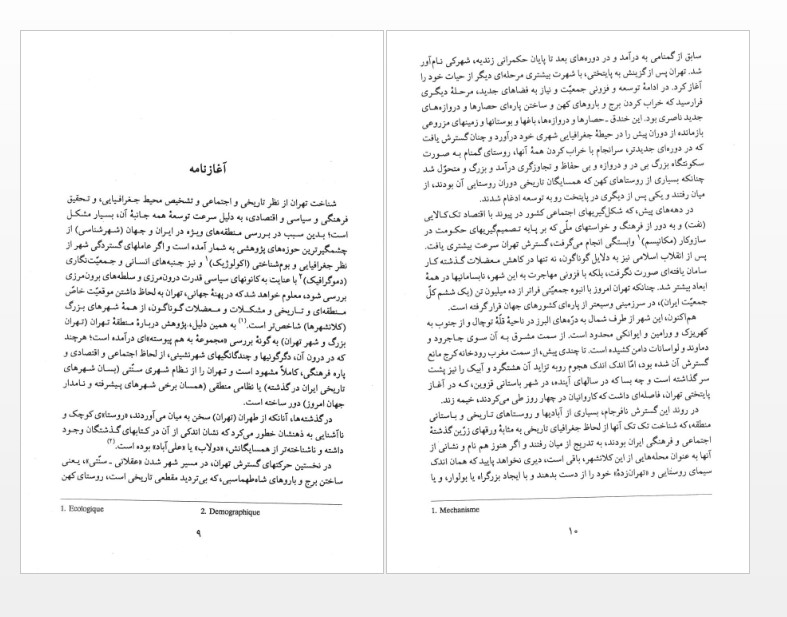 آغازنامه
شناخت تهران از نظر تاریخی و اجتماعی و تشخیص محیط جغرافیایی، و تحقیق
فرهنگی و سیاسی و اقتصادی، به دلیل سرعت توسعهٔ همه جانبهٔ آن، بسیار مشکل
است؛ بدین سبب در بررسی منطقه‌های ویژه در ایران و جهان (شهرشناسی) از
چشمگیرترین حوزه‌های پژوهشی به شمار آمده است و اگر عاملهای گستردگی شهر از
نظر جغرافیایی و بوم‌شناختی (اکولوژیک)۱ و نیز جنبه‌های انسانی و جمعیت‌نگاری
(دموگرافیک)۲ با عنایت به کانونهای سیاسی قدرت درون‌مرزی و سلطه‌های برون‌مرزی
بررسی شود، معلوم خواهد شد که در پهنهٔ جهانی، تهران به لحاظ داشتن موقعیّت خاصّ
منطقه‌ای و تاریخی و مشکلات و معضلات گوناگون، از همهٔ شهرهای بزرگ
(کلانشهرها) شاخص‌تر است.(۱) به همین دلیل، پژوهش دربارهٔ منطقهٔ تهران (تهران
بزرگ و شهر تهران) به گونهٔ بررسی «مجموعهٔ به هم پیوسته»ای درآمده است؛ هرچند
که در درون آن، دگرگونیها و چندگانگیهای شهرنشینی، از لحاظ اجتماعی و اقتصادی و
پاره فرهنگی، کاملاً مشهود است و تهران را از نظام شهری سنّتی (بسان شهرهای
تاریخی ایران در گذشته) یا نظامی منطقی (همسان برخی شهرهای پیشرفته و نامدار
جهان امروز) دور ساخته است.
در گذشته‌ها، آنانکه از طهران (تهران) سخن به میان می‌آوردند، «روستا»ی کوچک و
ناآشنایی به ذهنشان خطور می‌کرد که نشان اندکی از آن در کتابهای گذشتگان وجود
داشته و ناشناخته‌تر از همسایگانش، «دولاب» یا «علی‌آباد» بوده است.(۲)
در نخستین حرکتهای گسترش تهران، در مسیر شهر شدن «عقلانی ـ سنّتی»، یعنی
ساختن برج و باروهای شاه‌طهماسبی، که بی‌تردید مقطعی تاریخی است، روستای کهن
1. Ecologique
2. Demographique
۹
سابق از گمنامی به درآمد و در دوره‌های بعد تا پایان حکمرانی زندیه، شهرکی نام‌آور
شد. تهران پس از گزینش به پایتختی، با شهرت بیشتری مرحله‌ای دیگر از حیات خود را
آغاز کرد. در ادامهٔ توسعه و فزونی جمعیّت و نیاز به فضاهای جدید، مرحلهٔ دیگری
فرارسید که خراب کردن برج و باروهای کهن و ساختن پاره‌ای حصارها و دروازه‌های
جدید ناصری بود. این خندق ـ حصارها و دروازه‌ها، باغها و بوستانها و زمینهای مزروعی
بازمانده از دوران پیش را در حیطهٔ جغرافیایی شهری خود درآورد و چنان گسترش یافت
که در دوره‌ای جدیدتر، سرانجام با خراب کردن همهٔ آنها، روستای گمنام به صورت
سکونتگاه بزرگ بی در و دروازه و بی حفاظ و تجاوزگری درآمد و بزرگ و متحوّل شد
چنانکه بسیاری از روستاهای کهن که همسایگان تاریخی دوران روستایی آن بودند، از
میان رفتند و یکی پس از دیگری در پایتخت رو به توسعه ادغام شدند.
در دهه‌های پیش، که شکل‌گیریهای اجتماعی کشور در پیوند با اقتصاد تک‌کالایی
(نفت) و به دور از فرهنگ و خواستهای ملّی که بر پایه تصمیم‌گیریهای حکومت در
سازوکار (مکانیسم)۱ وابستگی انجام می‌گرفت، گسترش تهران سرعت بیشتری یافت.
پس از انقلاب اسلامی نیز به دلایل گوناگون، نه تنها در کاهش معضلات گذشته کار
سامان یافته‌ای صورت نگرفت، بلکه با فزونی مهاجرت به این شهر، نابسامانیها در همهٔ
ابعاد بیشتر شد. چنانکه تهران امروز با انبوه جمعیّتی فراتر از ده میلیون تن (یک ششم کلّ
جمعیّت ایران)، در سرزمینی وسیعتر از پاره‌ای کشورهای جهان قرار گرفته است.
هم‌اکنون، این شهر از طرف شمال به درّه‌های البرز در ناحیهٔ قلّهٔ توچال و از جنوب به
کهریزک و ورامین و ایوانکی محدود است. از سمت مشرق به آن سوی جاجرود و
دماوند و لواسانات دامن کشیده است. تا چندی پیش، از سمت مغرب رودخانه کرج مانع
گسترش آن شده بود، امّا اندک اندک هجوم روبه تزاید آن هشتگرد و آبیک را نیز پشت
سر گذاشته است و چه بسا که در سالهای آینده، در شهر باستانی قزوین، که در آغاز
پایتختی تهران، فاصله‌ای داشت که کاروانیان در چهار روز طی می‌کردند، خیمه زند.
در روند این گسترش نافرجام، بسیاری از آبادیها و روستاهای تاریخی و باستانی
منطقه، که شناخت تک تک آنها از لحاظ جغرافیای تاریخی به مثابهٔ ورقهای زرّین گذشتهٔ
اجتماعی و فرهنگی ایران بودند، به تدریج از میان رفتند و اگر هنوز هم نام و نشانی از
آنها به عنوان محله‌هایی از این کلانشهر، باقی است، دیری نخواهد پایید که همان اندک
سیمای روستایی و «تهران‌زدهٔ» خود را از دست بدهند و با ایجاد بزرگراه یا بولوار، و یا
1. Mechanisme
۱۰